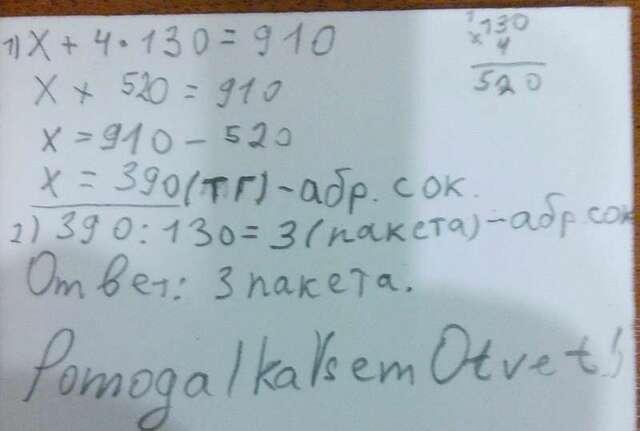 1) x + 4 · 130 = 910
x + 520 = 910
x = 910 - 520
x = 390 (тг) - абр. сок.
2) 390 : 130 = 3 (пакета) - абр сок
Ответ: 3 пакета.
130
x 4
520
Pomogalka Vsem Otvet!